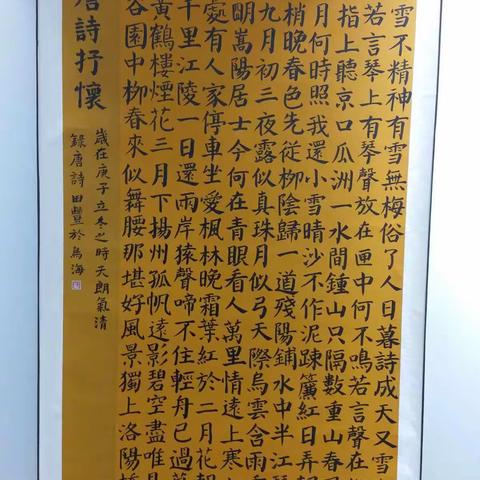 雪不精神有雪無梅俗了人日暮詩成天又雪
若言琴上有琴聲放在匣中何不鳴若言聲在
指上聽京口瓜洲一水間鍾山只隔數重山春
月何時照我還小雪晴沙不作泥疎簾紅日弄
梢晚春色先從柳陰歸一道殘陽鋪水中半江
九月初三夜露似真珠月似弓天際烏雲含雨
明嵩陽居士今何在青眼看人萬里情遠上寒
處有人家停車坐愛楓林晚霜葉紅於二月花朝
千里江陵一日還兩岸猿聲啼不住輕舟已過萬
黃鶴樓煙花三月下揚州孤帆遠影碧空盡唯見
谷園中柳春來似舞腰那堪好風景獨上洛陽橋
唐詩抒懷
歲在庚子立冬之時天朗氣清
錄唐詩田豐於烏海